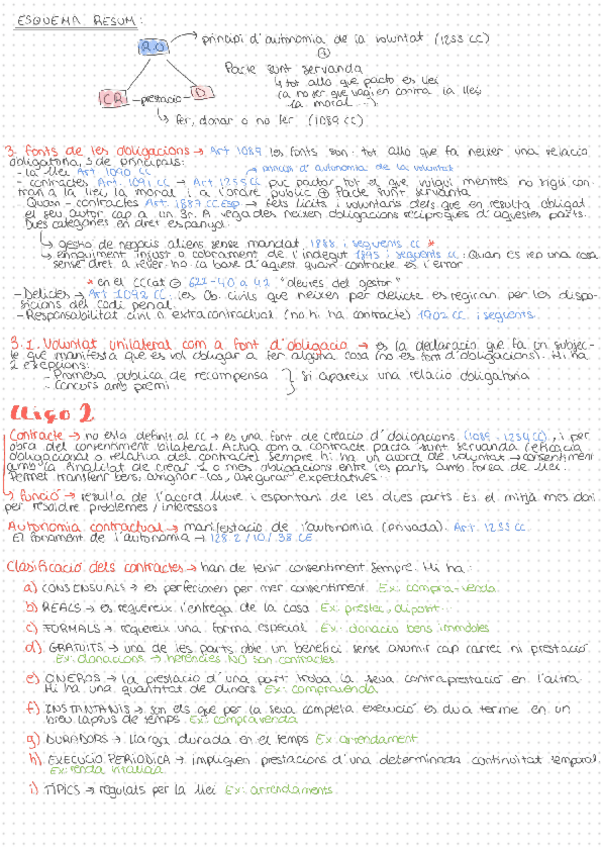 ESQUEMA RESUM:
R.O → principi d'autonomia de la voluntat (1255 CC)
Pacte sunt servanda
↳ tot allo que pacto es llei
(a no ser que vagi en contra la llei,
la moral...)
CR - prestació - D
↳ fer, donar o no fer (1089 CC)
3. Fonts de les obligacions → Art 1089. les fonts son: tot allo que fa neixer una relacio
obligatoria, 5 de principals:
- la llei Art 1090 CC
principi d'autonomia de la voluntat
- contractes Art. 1091 CC → Art 1255 CC puc pactar tot el que vulgui mentres no sigui con-
tran a la llei, la moral i a l'ordre public → Pacte sunt servanda
Quasi - contractes Art. 1887 CCEsp → fets licits i voluntaris dels que en resulta obligat
el seu autor cap a un 3r. A vegades neixen obligacions reciproques d'aquestes parts.
Dues categories en dret espanyol:
↳ gestio de negocis aliens sense mandat 1888 i seguents CC *
↳ enriquiment injust o cobrament de l'indegut 1895 i seguents CC: Quan es rep una cosa
sense dret a rebre-ho. la base d'aquest quasi contracte es l'error
* en el CCCat → 622-40 a 42 "deures del gestor"
- Delictes → Art 1092 CC. les Ob. civils que neixen per delicte es regiran per les dispo-
sicions del codi penal.
- Responsabilitat civil o extracontractual (no hi ha contracte) 1902 CC. i seguents.
3.1. Voluntat unilateral com a font d'obligacio → es la declaracio que fa un subjec-
te que manifesta que es vol obligar a fer alguna cosa (no es font d'obligacions). Hi ha
2 excepcions:
- Promesa publica de recompensa
- Concurs amb premi
} Si apareix una relacio obligatoria
Lliço 2
Contracte → no esta definit al CC → es una font de creacio d'obligacions (1089 - 1254 CC), i per
obra del consentiment bilateral. Actua com a contracte pacta sunt servanda (eficacia
obligacional o relativa del contracte) sempre hi ha un acord de voluntat → consentiment
amb la finalitat de crear 1 o mes obligacions entre les parts, amb força de llei.
Permet transferir bens, asignar-los, asegurar expectatives.
↳ Funcio → resulta de l'acord lliure i espontani de les dues parts. Es el mitja mes idoni
per resoldre problemes / interessos
Autonomia contractual → manifestacio de l'autonomia (privada). Art. 1255 CC.
El fonament de l'autonomia → 128.2 / 10 / 38 CE
Clasificacio dels contractes → han de tenir consentiment sempre. Hi ha:
a) CONSENSUALS → es perfecionen per mer consentiment. Ex: compra-venda
b) REALS → es requereix l'entrega de la cosa Ex: prestec, diposit
c) FORMALS → requereix una forma especial. Ex: donacio bens immobles
d) GRATUITS → una de les parts obte un benefici sense asumir cap carrec ni prestacio
Ex: donacions → herencies NO son contractes
e) ONEROS → la prestacio d'una part troba la seva contraprestacio en l'altra.
Hi ha una quantitat de diners Ex: compravenda
f) INSTANTANIS → son els que per la seva completa execucio es dua a terme en un
breu lapsus de temps. Ex: compravenda
g) DURADORS → llarga durada en el temps Ex: arrendament
h) EXECUCIO PERIODICA → impliquen prestacions d'una determinada continuitat temporal.
Ex: renda vitalicia
i) TIPICS → regulats per la llei Ex: arrendaments